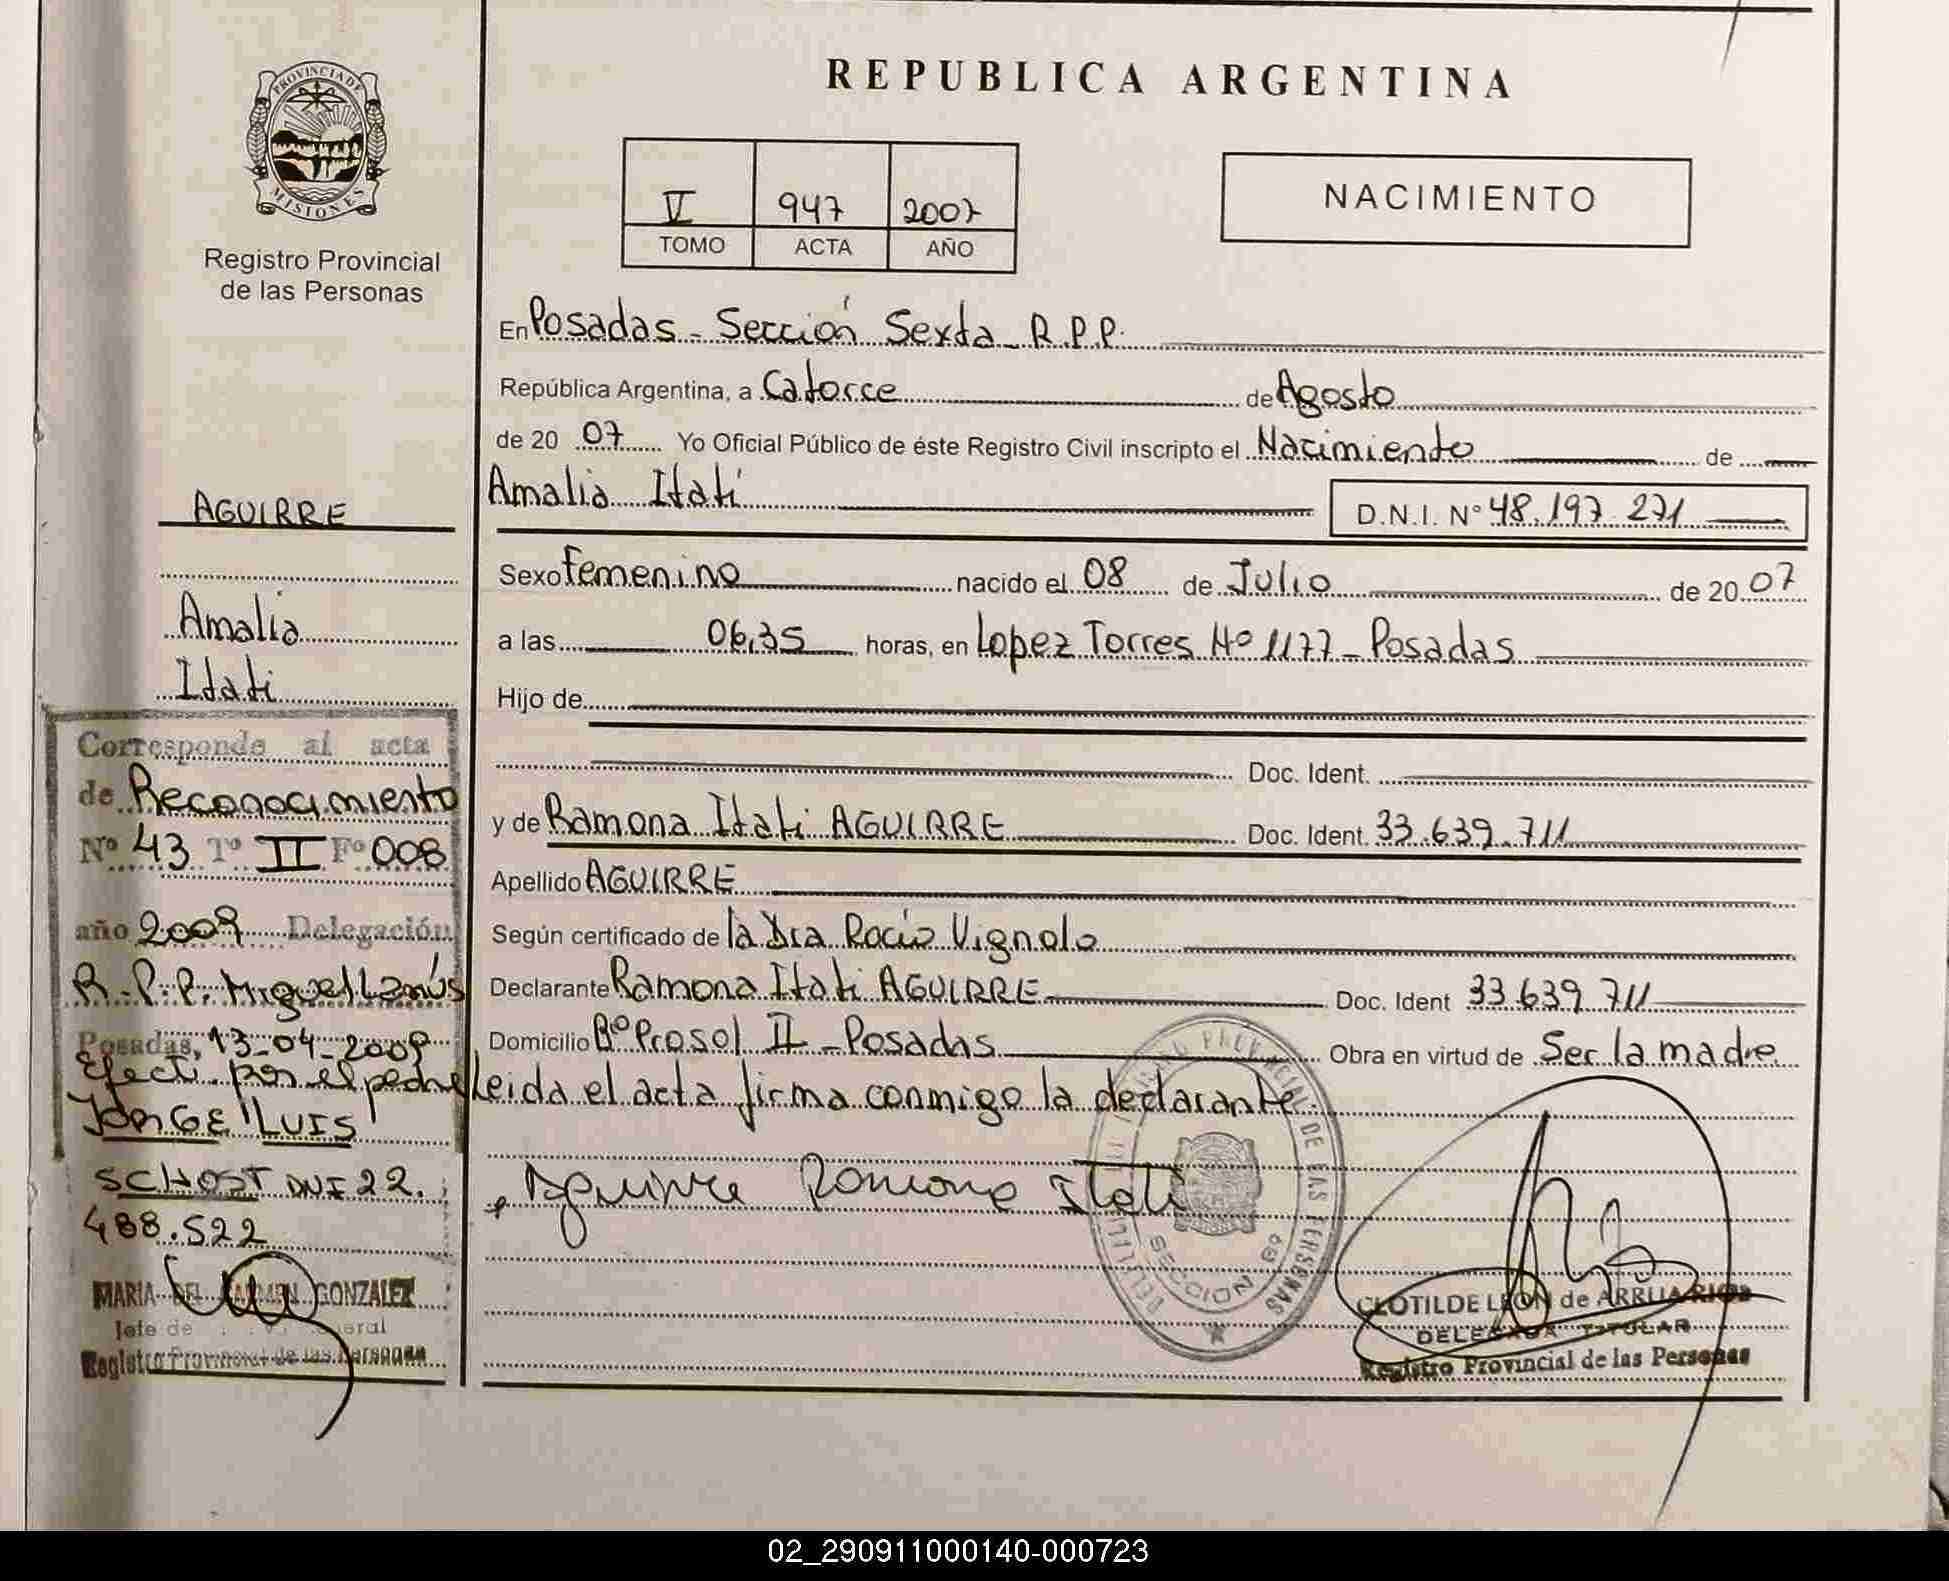 PROVINCIA DE
MISIONES
Registro Provincial
de las Personas
AGUIRRE
Amalia
Itatí
Corresponde al acta
de Reconocimiento
Nº 43 Tº II Fº 008
año 2009 Delegación
R.P.P. Miguel Lanús
Posadas, 13-04-2009
Efect. por el padre
JORGE LUIS
SCHOST DNI 22.
488.522
MARIA DEL CARMEN GONZALEZ
Jefe de
Registro Provincial de las Personas
REPUBLICA ARGENTINA
V 947 2007
TOMO ACTA AÑO
NACIMIENTO
En Posadas - Sección Sexta - R.P.P.
República Argentina, a Catorce de Agosto
de 20 07 Yo Oficial Público de éste Registro Civil inscripto el Nacimiento de
Amalia Itatí
D.N.I. Nº 48.197.271
Sexo Femenino nacido el 08 de Julio de 20 07
a las 06,35 horas, en Lopez Torres Nº 1177 - Posadas
Hijo de
Doc. Ident.
y de Ramona Itati AGUIRRE Doc. Ident. 33.639.711
Apellido AGUIRRE
Según certificado de la Dra Rocio Vignolo
Declarante Ramona Itati AGUIRRE Doc. Ident 33.639.711
Domicilio Bº Prosol II - Posadas Obra en virtud de Ser la madre
Leida el acta firma conmigo la declarante.
Aguirre Ramona Itati
REGISTRO PROVINCIAL DE LAS PERSONAS
SECCION 6ª
CLOTILDE LEON de ARRUA RIOS
DELEGADA TITULAR
Registro Provincial de las Personas
02_290911000140-000723